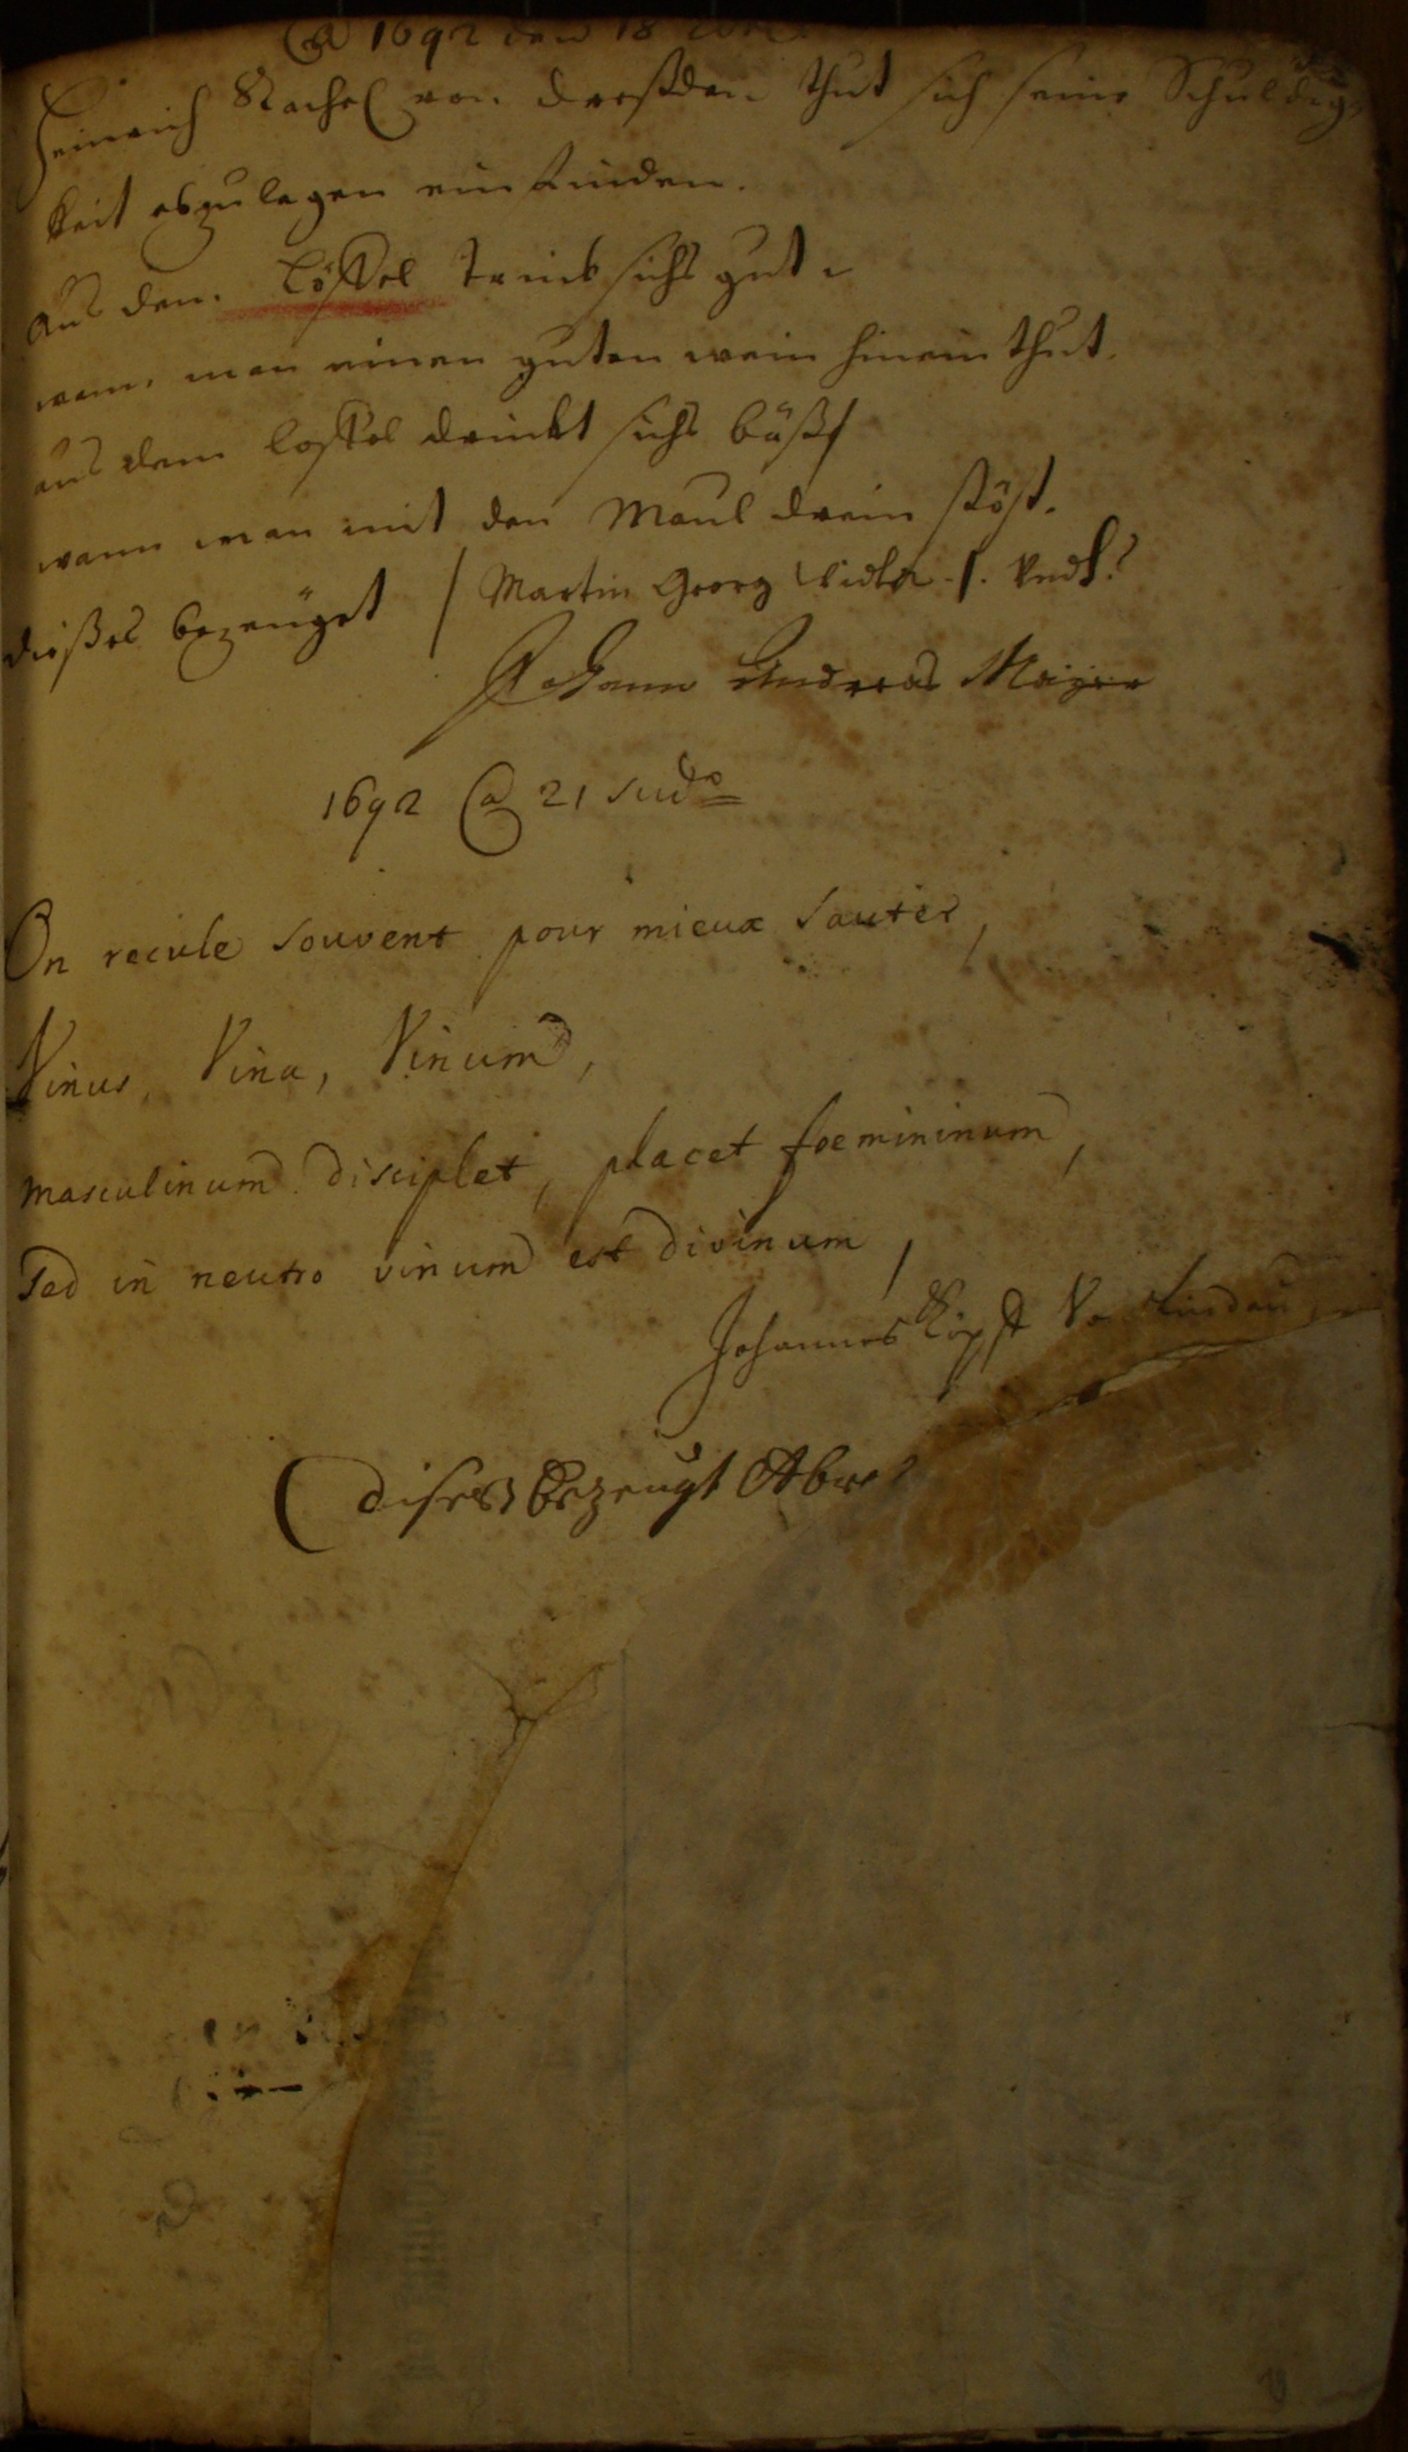 1692 den 18
Heinrich Rachel von dreßden thut sich seine Schuldig-
keit abzulegen einfinden.
Aus den. Löffel trinck sichs gut
wann man einen guten wein hinein thut.
aus dem loffel drinckt sichs böß
wann man mit den Maul drein stöst.
dießes bezeuget / Martin Georg
Johann Andreas Majer
1692 @ 21
On recule souvent pour mieux sauter,
Vinus, Vina, Vinum,
masculinum disciplet, placet foemininum,
sed in neutro vinum est divinum,
Johannes Lindau
dises bezeugt Abra